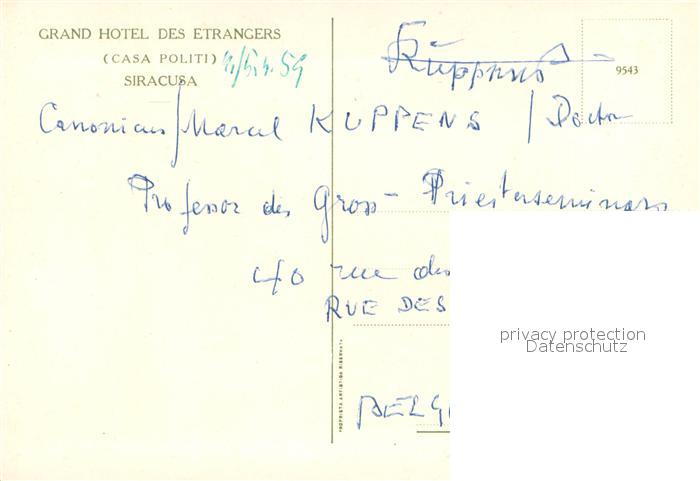 GRAND HOTEL DES ETRANGERS
(CASA POLITI)
SIRACUSA
Küppens
9543
Canonicus / Marcel KUPPENS / Doctor
Professor des Gross- Priesterseminars
40 rue des
RUE DES
BELG
PROPRIETÀ ARTISTICA RISERVATA
privacy protection
Datenschutz